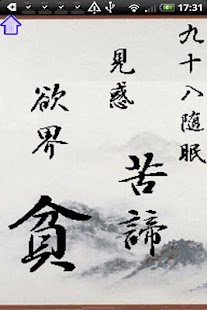 17:31
九十八随眠
見惑
苦諦
欲界
貧